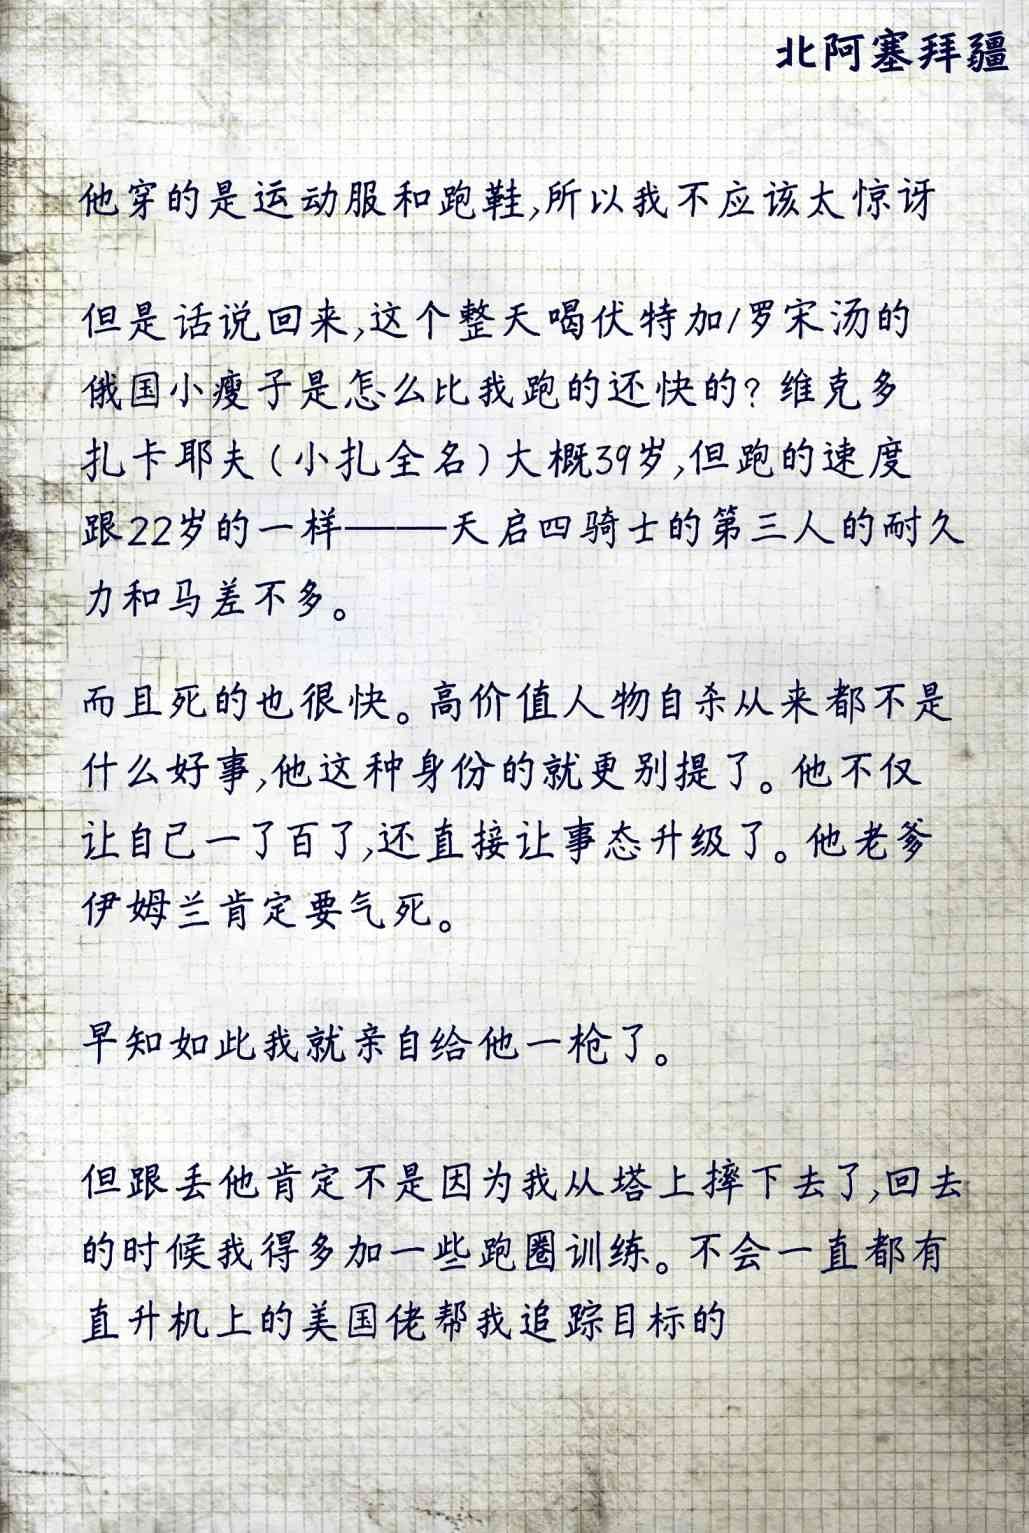 北阿塞拜疆
他穿的是运动服和跑鞋,所以我不应该太惊讶
但是话说回来,这个整天喝伏特加/罗宋汤的
俄国小瘦子是怎么比我跑的还快的? 维克多
扎卡耶夫(小扎全名)大概39岁,但跑的速度
跟22岁的一样——天启四骑士的第三人的耐久
力和马差不多。
而且死的也很快。高价值人物自杀从来都不是
什么好事,他这种身份的就更别提了。他不仅
让自己一了百了,还直接让事态升级了。他老爹
伊姆兰肯定要气死。
早知如此我就亲自给他一枪了。
但跟丢他肯定不是因为我从塔上摔下去了,回去
的时候我得多加一些跑圈训练。不会一直都有
直升机上的美国佬帮我追踪目标的